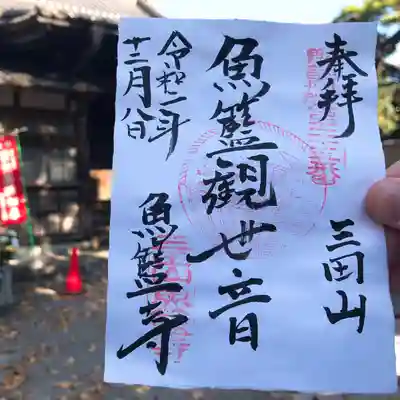 奉拝
三田山
魚籃觀世音
魚籃寺
令和二年
十二月八日